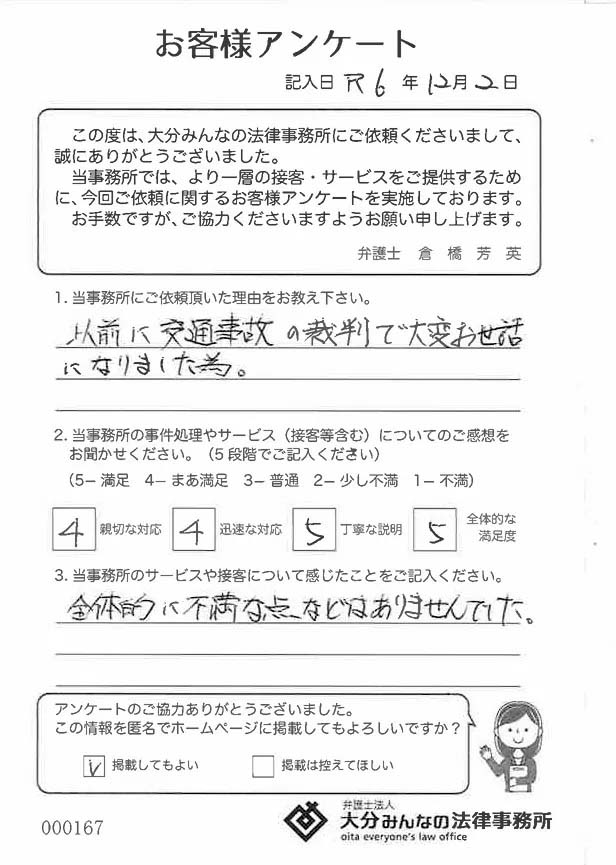 お客様アンケート
記入日 R6 年 12月 2日
この度は、大分みんなの法律事務所にご依頼くださいまして、
誠にありがとうございました。
当事務所では、より一層の接客・サービスをご提供するため
に、今回ご依頼に関するお客様アンケートを実施しております。
お手数ですが、ご協力くださいますようお願い申し上げます。
弁護士 倉橋芳英
1. 当事務所にご依頼頂いた理由をお教え下さい。
以前に交通事故の裁判で大変お世話
になりました為。
2. 当事務所の事件処理やサービス（接客等含む）についてのご感想を
お聞かせください。（5段階でご記入ください）
（5− 満足 4− まあ満足 3− 普通 2− 少し不満 1− 不満）
4 親切な対応 4 迅速な対応 5 丁寧な説明 5 全体的な
満足度
3. 当事務所のサービスや接客について感じたことをご記入ください。
全体的に不満な点などはありませんでした。
アンケートのご協力ありがとうございました。
この情報を匿名でホームページに掲載してもよろしいですか？
掲載してもよい 掲載は控えてほしい
弁護士法人
大分みんなの法律事務所
oita everyone's law office
000167